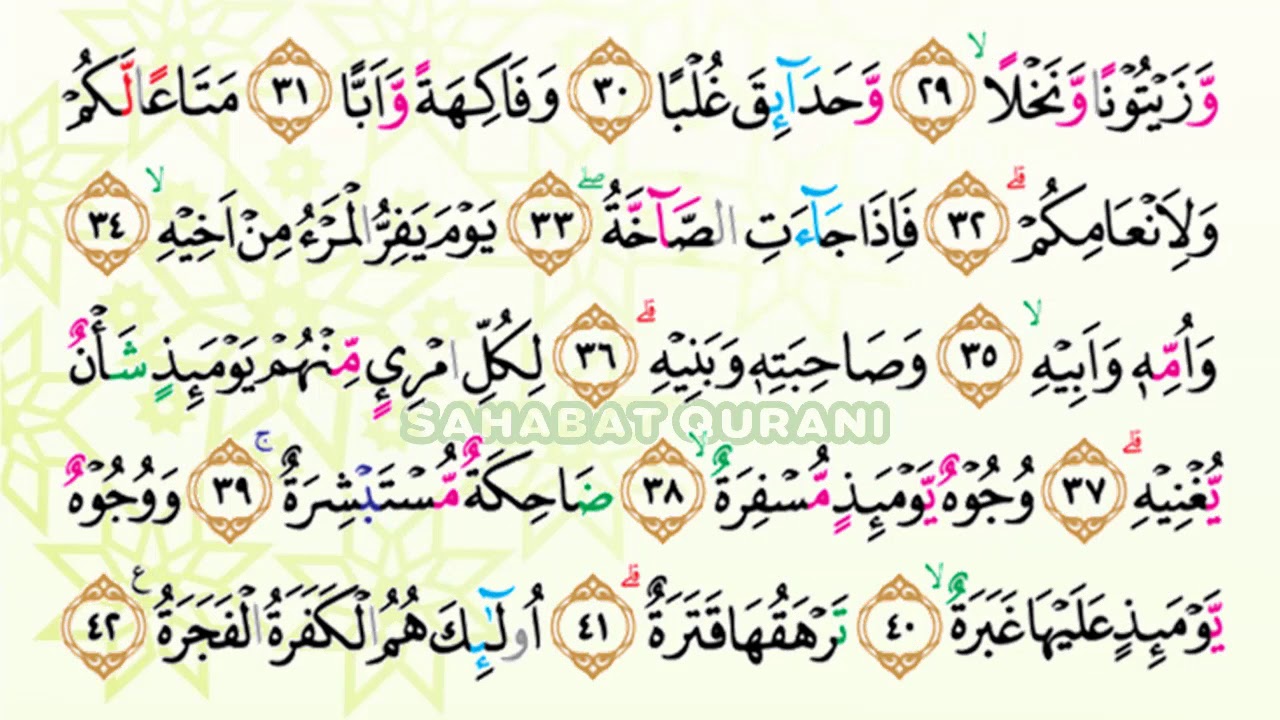 وَّزَيْتُوْنًا وَّنَخْلًاۙ ٢٩ وَّحَدَاۤئِقَ غُلْبًا ٣٠ وَفَاكِهَةً وَّاَبًّا ٣١ مَتَاعًا لَّكُمْ
وَلِاَنْعَامِكُمْۗ ٣٢ فَاِذَا جَاۤءَتِ الصَّاۤخَّةُۖ ٣٣ يَوْمَ يَفِرُّ الْمَرْءُ مِنْ اَخِيْهِۙ ٣٤
وَاُمِّهٖ وَاَبِيْهِۙ ٣٥ وَصَاحِبَتِهٖ وَبَنِيْهِۗ ٣٦ لِكُلِّ امْرِئٍ مِّنْهُمْ يَوْمَئِذٍ شَأْنٌ
SAHABAT QURANI
يُّغْنِيْهِۗ ٣٧ وُجُوْهٌ يَّوْمَئِذٍ مُّسْفِرَةٌۙ ٣٨ ضَاحِكَةٌ مُّسْتَبْشِرَةٌۚ ٣٩ وَوُجُوْهٌ
يَّوْمَئِذٍ عَلَيْهَا غَبَرَةٌۙ ٤٠ تَرْهَقُهَا قَتَرَةٌۗ ٤١ اُولٰۤئِكَ هُمُ الْكَفَرَةُ الْفَجَرَةُ ࣖ ٤٢